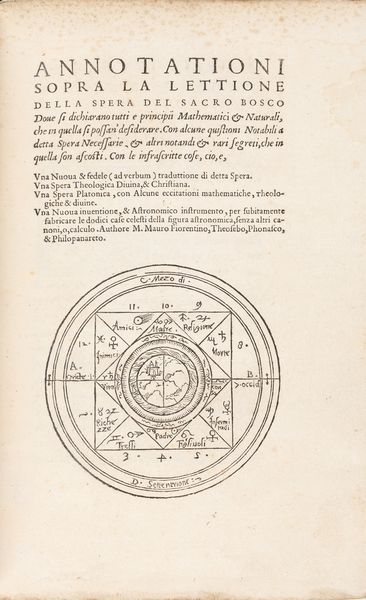 ANNOTATIONI
SOPRA LA LETTIONE
DELLA SPERA DEL SACRO BOSCO
Doue si dichiarano tutti e principii Mathematici & Naturali,
che in quella si possan' desiderare. Con alcune quistioni Notabili a
detta Spera Necessarie, & altri notandi & rari segreti, che in
quella son ascosti. Con le infrascritte cose, cio, e,
Vna Nuoua & fedele (ad verbum) traduttione di detta Spera.
Vna Spera Theologica Diuina, & Christiana.
Vna Spera Platonica, con Alcune eccitationi mathematiche, Theolo-
giche & diuine.
Vna Nuoua inuentione, & Astronomico instrumento, per subitamente
fabricare le dodici case celesti della figura astronomica, senza altri ca-
noni, o, calculo. Authore M. Mauro Fiorentino, Theosebo, Phonasco,
& Philopanareto.
C. Mezo di
11 10 9
Amici Madre Religione
12 Morte 8
A. B.
Vita occid
1 Riche
zze
7
2 Fratelli Padre Figliuoli
3 4 5
D. Setentrione